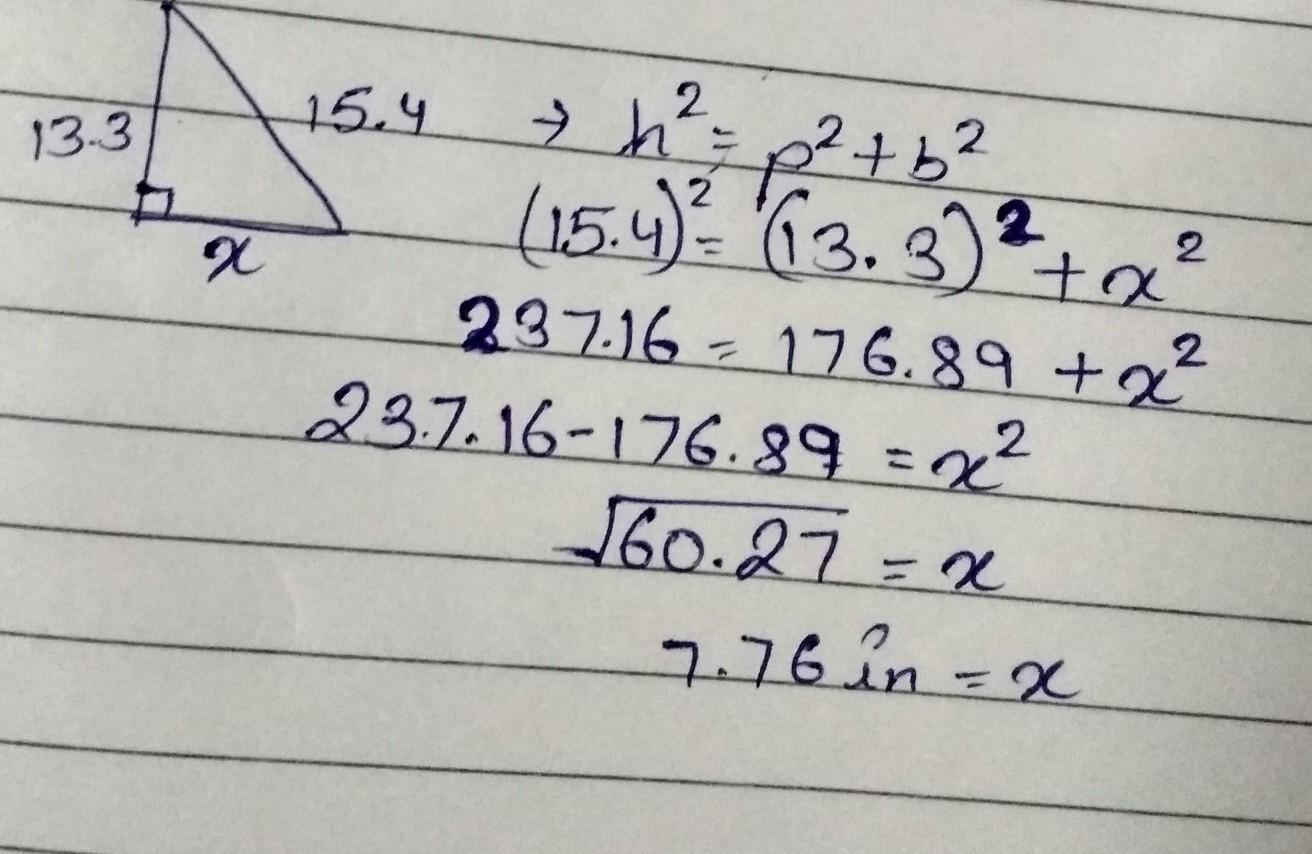 13.3
15.4
x
→ h² = p² + b²
(15.4)² = (13.3)² + x²
237.16 = 176.89 + x²
237.16 - 176.89 = x²
√60.27 = x
7.76 in = x